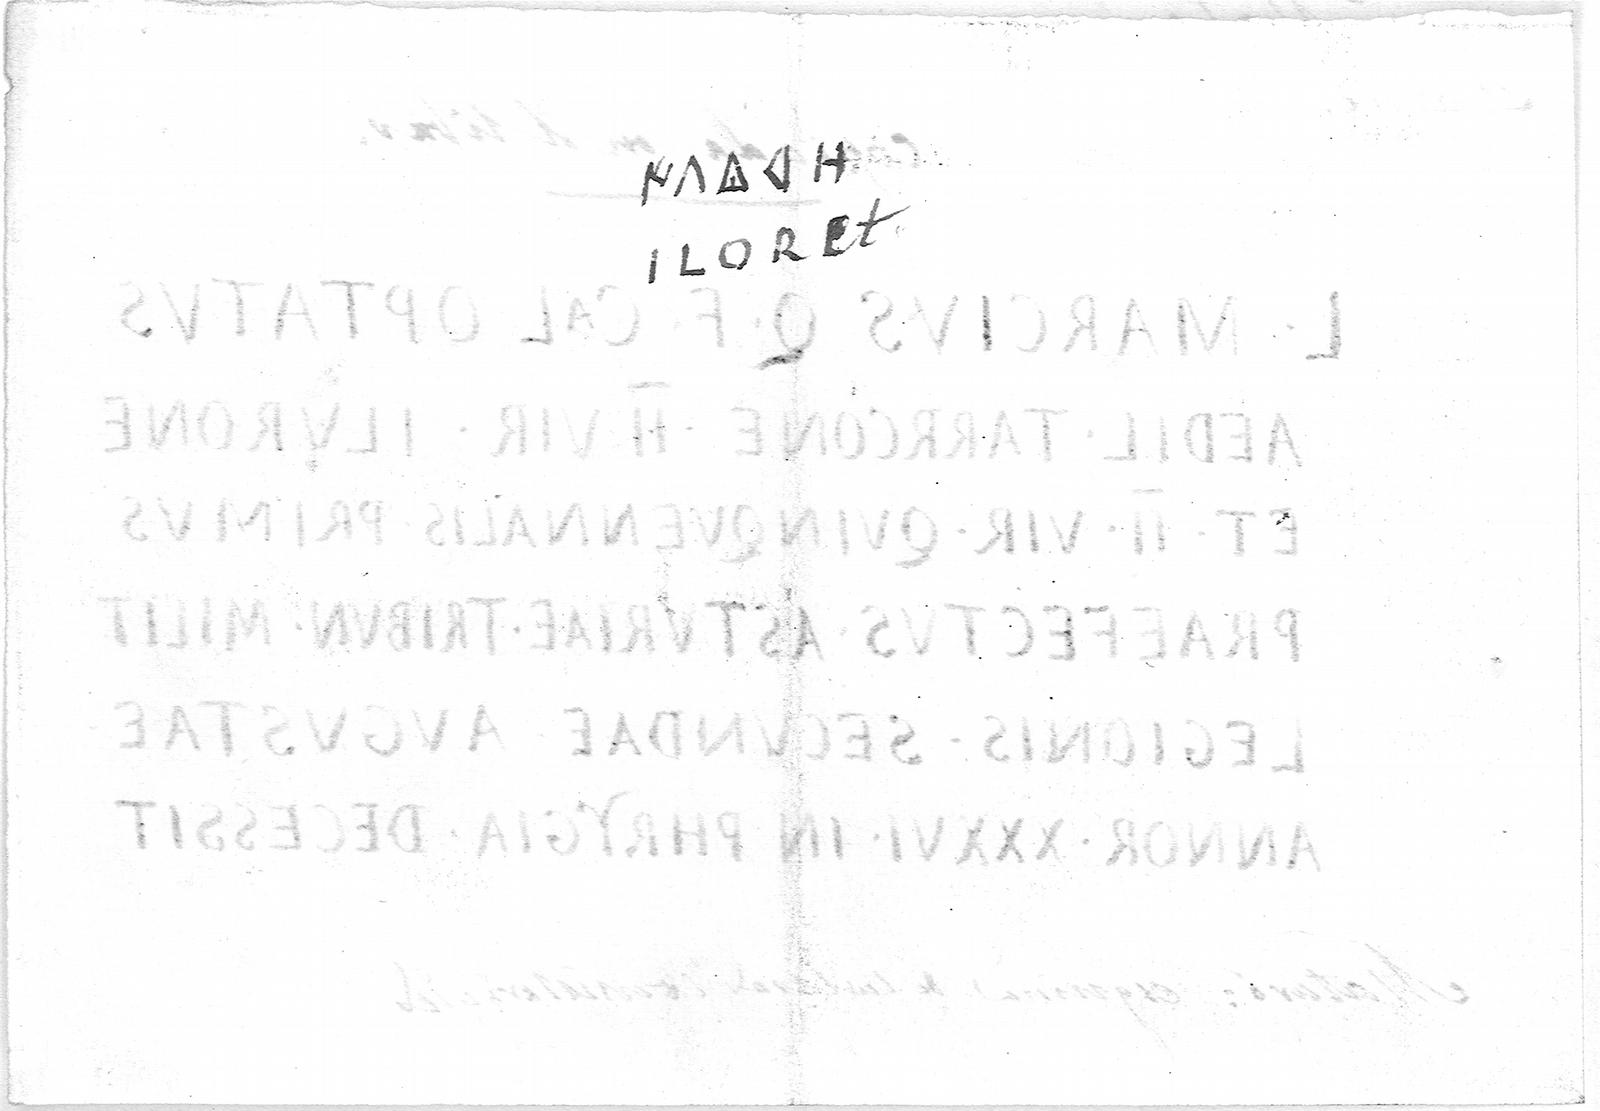 ILORET
L· MARCIVS Q·F·CAL OPTATVS
AEDIL·TARRCONE · II VIR · ILVRONE
ET · II·VIR·QVINQVENNALIS·PRIMVS
PRAEFECTVS·ASTVRIAE·TRIBVN·MILIT
LEGIONIS·SECVNDAE AVGVSTAE
ANNOR·XXXVI·IN·PHRYGIA DECESSIT
Mataró: